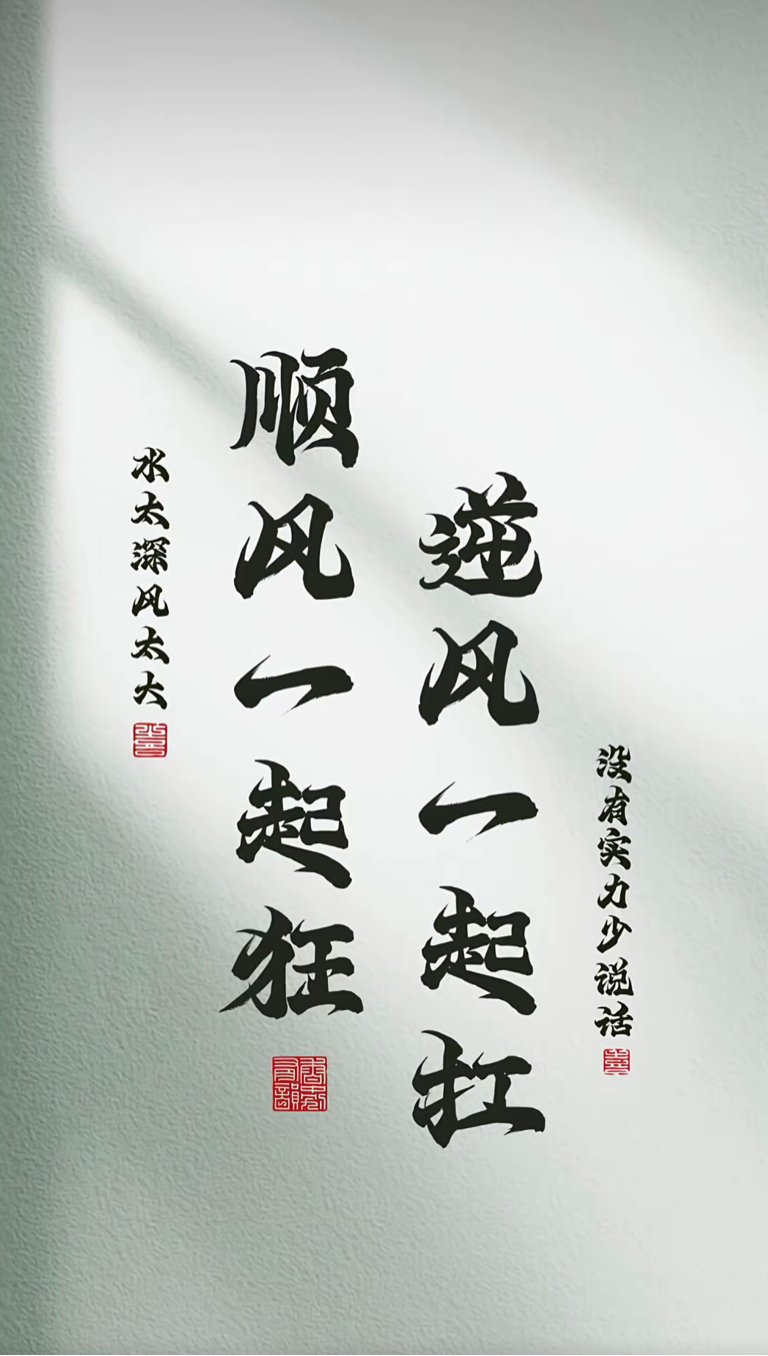 水太深风太大
顺风一起狂
逆风一起扛
没有实力少说话